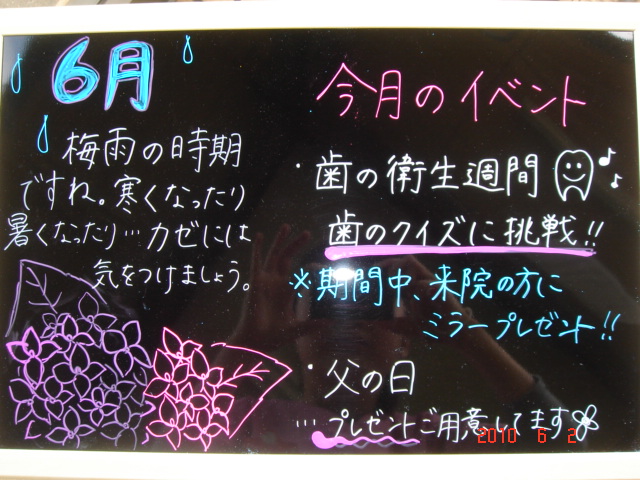 6月
梅雨の時期
ですね。寒くなったり
暑くなったり…カゼには
気をつけましょう。
今月のイベント
・歯の衛生週間
歯のクイズに挑戦!!
※期間中、来院の方に
ミラープレゼント!!
・父の日
…プレゼントご用意してます
2010 6 2